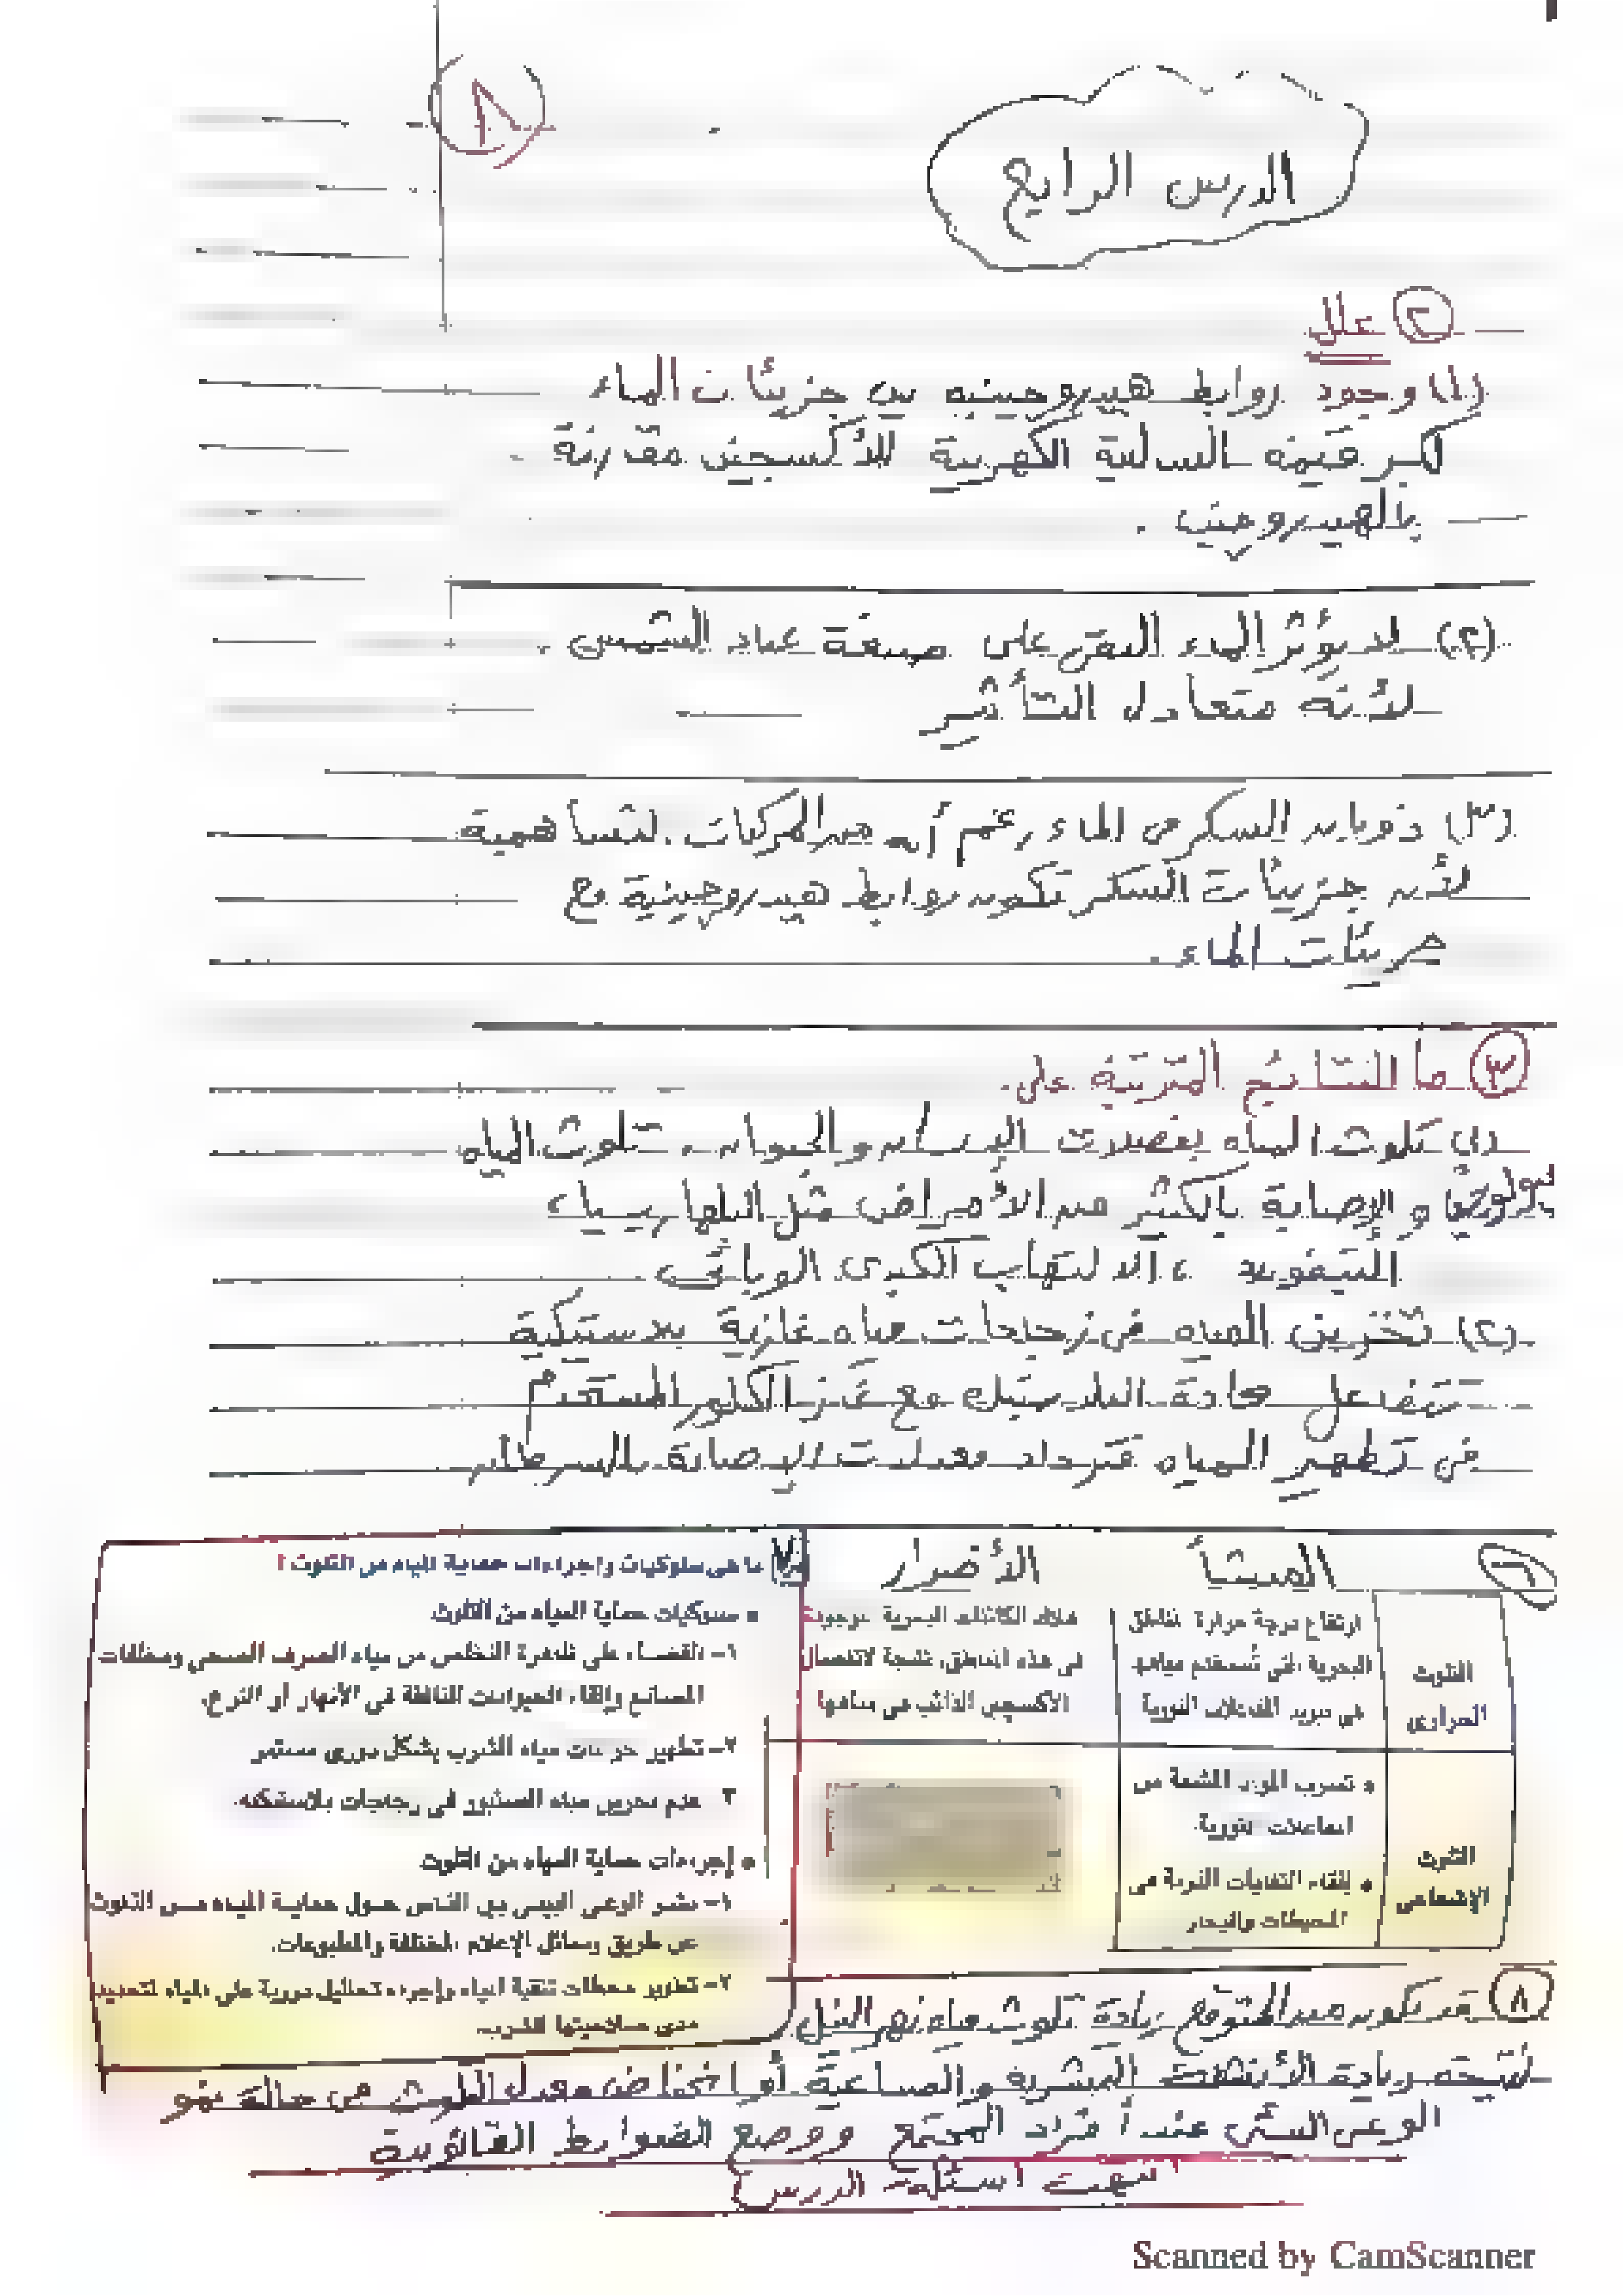 ٨
الدرس الرابع
٢ علل
(١) وجود روابط هيدروجينية بين جزيئات الماء
لكبر قيمة السالبية الكهربية للأكسجين مقارنة
بالهيدروجين .
(٢) لا يؤثر الماء النقى على صبغة عباد الشمس .
لأنه متعادل التأثير
(٣) ذوبان السكر فى الماء رغم أنه من المركبات التساهمية
لأن جزيئات السكر تكون روابط هيدروجينية مع
جزيئات الماء .
٣ ما النتائج المترتبة على
(١) تلوث المياه بفضلات الإنسان والحيوان . تلوث المياه
بيولوجيا و الإصابة بالكثير من الأمراض مثل البلهارسيا ،
التيفويد ، الالتهاب الكبدى الوبائى
(٢) تخزين المياه فى زجاجات مياه غازية بلاستيكية
تتفاعل مادة البلاستيك مع غاز الكلور المستخدم
فى تطهير المياه فتزداد معدلات الإصابة بالسرطان
٦ المنشأ الأضرار
التلوث الحرارى
ارتفاع درجة حرارة المناطق
البحرية التى تُستخدم مياهها
فى تبريد المفاعلات النووية
هلاك الكائنات البحرية الموجودة
فى هذه المناطق، نتيجة لانفصال
الأكسجين الذائب فى مياهها
التلوث الإشعاعى
• تسرب المواد المشعة من
المفاعلات النووية.
• إلقاء النفايات الذرية فى
المحيطات والبحار
٧ ما هى سلوكيات وإجراءات حماية المياه من التلوث ؟
• سلوكيات حماية المياه من التلوث
١- القضاء على ظاهرة التخلص من مياه الصرف الصحى ومخلفات
المصانع وإلقاء الحيوانات النافقة فى الأنهار أو الترع.
٢- تطهير خزانات مياه الشرب بشكل دورى مستمر
٣- عدم تخزين مياه الصنبور فى زجاجات بلاستيكية.
• إجراءات حماية المياه من التلوث
١- نشر الوعى البيئى بين الناس حول حماية المياه من التلوث
عن طريق وسائل الإعلام المختلفة والمطبوعات.
٢- تطوير محطات تنقية المياه وإجراء تحاليل دورية على المياه لتحديد
مدى صلاحيتها للشرب.
٨ قد يكون من المتوقع زيادة تلوث مياه نهر النيل
نتيجة زيادة الأنشطة البشرية والصناعية أو انخفاض معدل التلوث فى حالة نمو
الوعى البيئى عند أفراد المجتمع ووضع الضوابط القانونية
انتهت أسئلة الدرس
Scanned by CamScanner